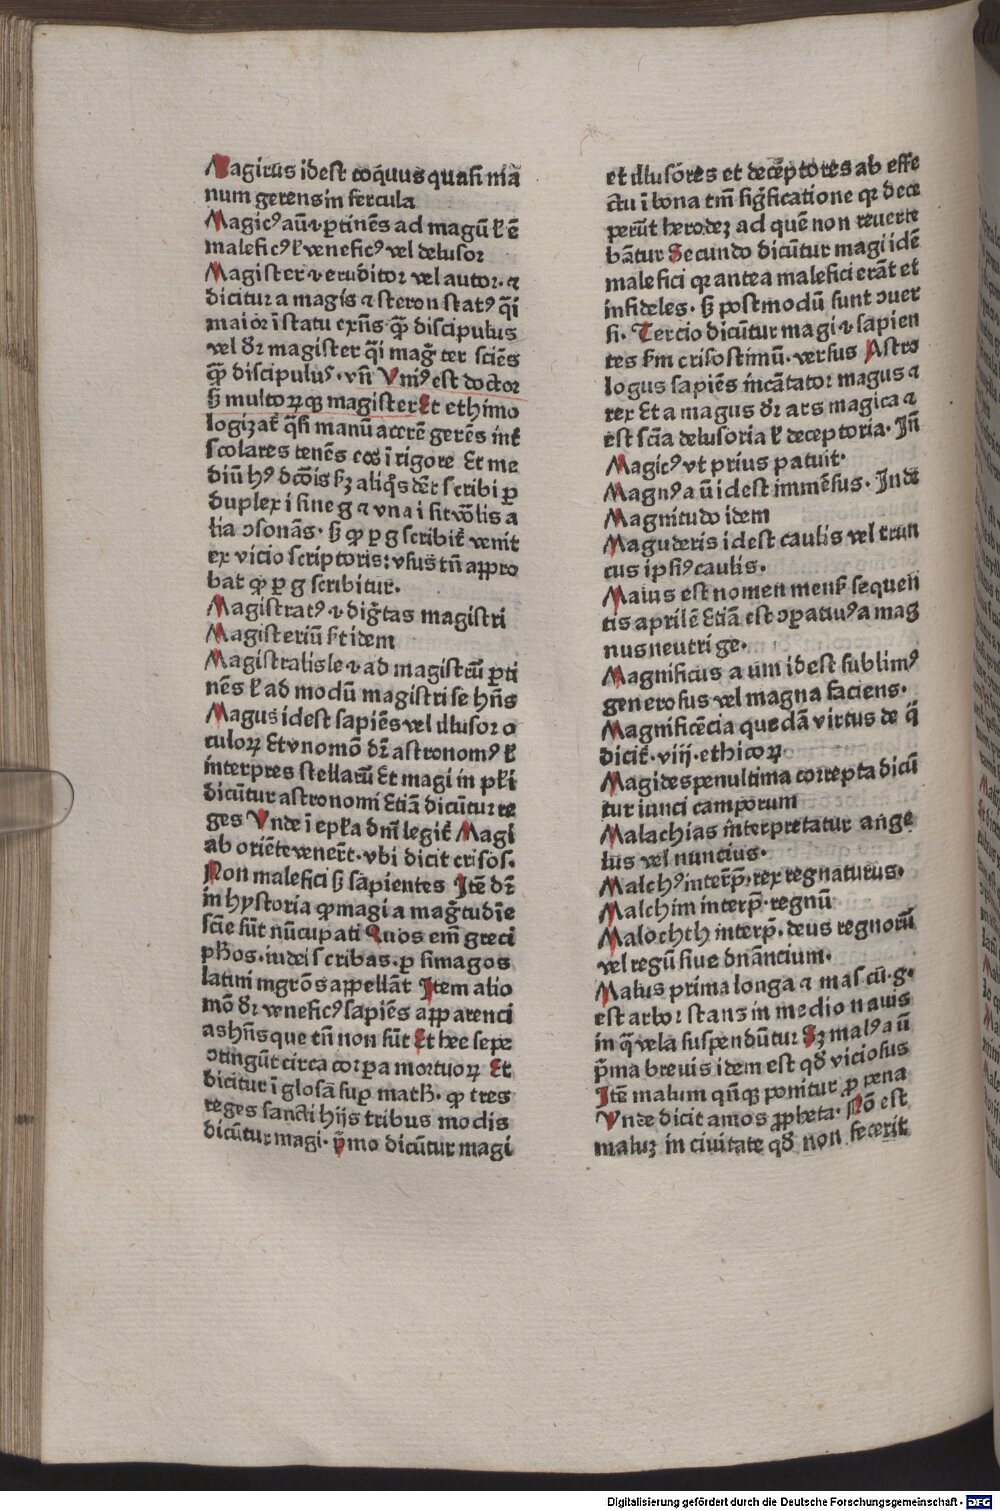 Magirus idest coq̄uus quasi mā
num gerens in fercula
Magicꝰ aū ꝛ ꝑtinēs ad magū ł ē
maleficꝰ ł veneficꝰ vel delusor
Magister ꝛ eruditor vel autor· ꝛ
dicitur a magis ꝛ steron statꝰ q̄i
maior ī statu exn̄s q̄ꝫ discipulus
vel dr̄ magister q̄i mag̃ ter sciēs
q̄ꝫ discipulus· vn̄ Vnꝰ est doctor
ꝫ multoꝝ qꝫ magister Et ethimo
logizat̃ q̄si manū acerē gerēs int̃
scolares tenēs eos ī rigore Et me
diū hꝰ dcōis ſꝫ aliq̄s dēt scribi ꝑ
duplex i sine g ꝛ vna i sit vōlis a
lia ↄsonās· ꝫ ꝙ ꝑ g scribit̃ venit
ex vicio scriptoris: vsus tn̄ appro
bat ꝙ ꝑ g scribitur·
Magistratꝰ ꝛ dig̃tas magistri
Magisteriū ſt idem
Magistralis le ꝛ ad magistrū ꝑti
nēs ł ad modū magistri se hn̄s
Magus idest sapiēs vel illusor o
culoꝝ Et vno mō dr̄ astronomꝰ ł
interpres stellarū Et magi in pſi
dicūtur astronomi Etiā dicūtur re
ges Vnde ī epl̄a dnī legit̃ Magi
ab oriēte venerūt· vbi dicit crisos·
Non malefici ꝫ sapientes Itē dr̄
in hystoria ꝙ magi a mag̃tudīe
sciē sūt nūcupati Quos em̄ greci
ph̄os· iudei scribas· ꝑ simagos
latini ingrōs appellāt Item alio
mō dr̄ veneficꝰ sapiēs apparenci
as hn̄s que tn̄ non sūt Et hee sepe
ↄtingūt circa corpa mortuoꝝ Et
dicitur ī glosa suꝑ math̄· ꝙ tres
reges sancti hijs tribus modis
dicūtur magi· p̄mo dicūtur magi
et illusores et deceptores ab effe
ctu ī bona tm̄ sig̃ficatione qꝛ dece
perūt herodeꝫ ad quē non reuerte
bātur Secundo dicūtur magi idē
malefici qꝛ antea malefici erāt et
infideles· ꝫ postmodū sunt ↄuer
si· Tercio dicūtur magi ꝛ sapien
tes ſm crisostimū· versus Astro
logus sapiēs incātator magus ꝛ
rex Et a magus dr̄ ars magica ꝛ
est scīa delusoria ł deceptoria· In̄
Magicꝰ vt prius patuit·
Magnꝰ a ū idest immēsus· Inde
Magnitudo idem
Maguderis idest caulis vel trun
cus ipsiꝰ caulis·
Maius est nomen mensſ sequen
tis aprilē Etiā est ↄꝑatiuꝰ a mag
nus neutri ge·
Magnificus a um idest sublimꝰ
generosus vel magna faciens·
Magnificēcia quedā virtus de q̄
dicit̃· viij· ethicoꝝ
Magides penultima correpta dicū
tur iunci camporum
Malachias interpretatur ange
lus vel nuncius·
Malchꝰ interp̄· rex regnaturus·
Malchim interp̄· regnū
Malochth interp̄· deus regnorū
vel regū siue dn̄ancium·
Malus prima longa ꝛ mascū· g·
est arbor stans in medio nauis
in q̄ vela suspendūtur Sꝫ malꝰ a ū
p̄ma breuis idem est qd̄ viciosus
Itē malum qn̄qꝫ ponitur ꝓ pena
Vnde dicit amos ꝓpheta· Nō est
maluꝫ in ciuitate qd̄ non fecerit
Digitalisierung gefördert durch die Deutsche Forschungsgemeinschaft - DFG